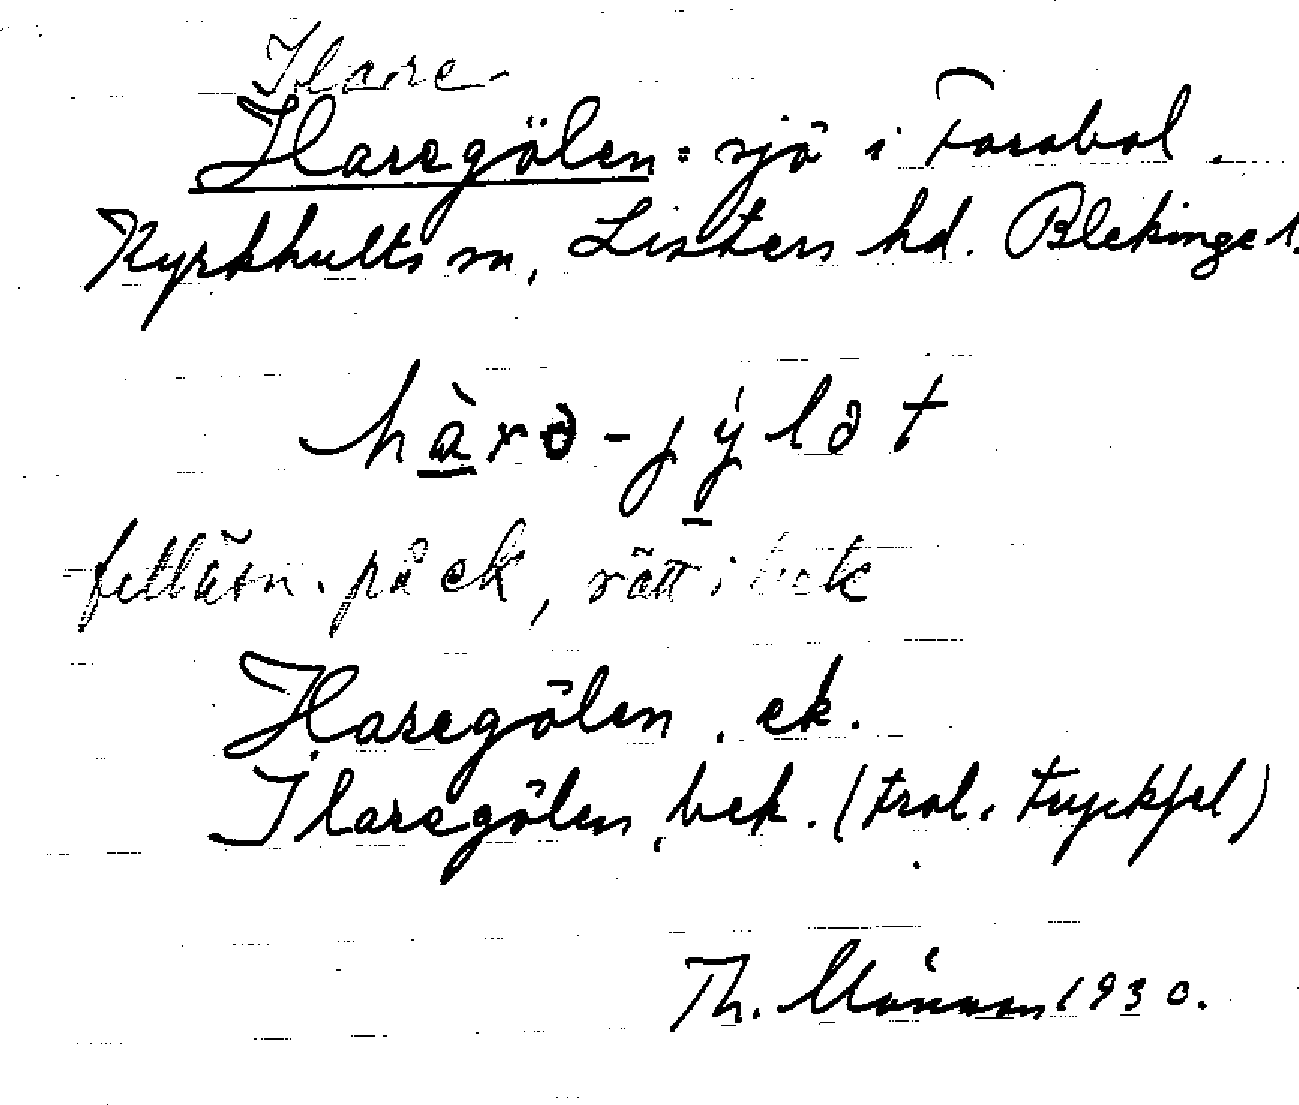 Ilare-
Haregölen = sjö i Farabol.
Kyrkhults sn, Listers hd. Blekinge l.
hàrə-jýlət
felläsn. på ek, rätt i bek
Haregölen, ek.
Ilaregölen, bek. (trol. tryckfel)
Th. Månsson 1930.